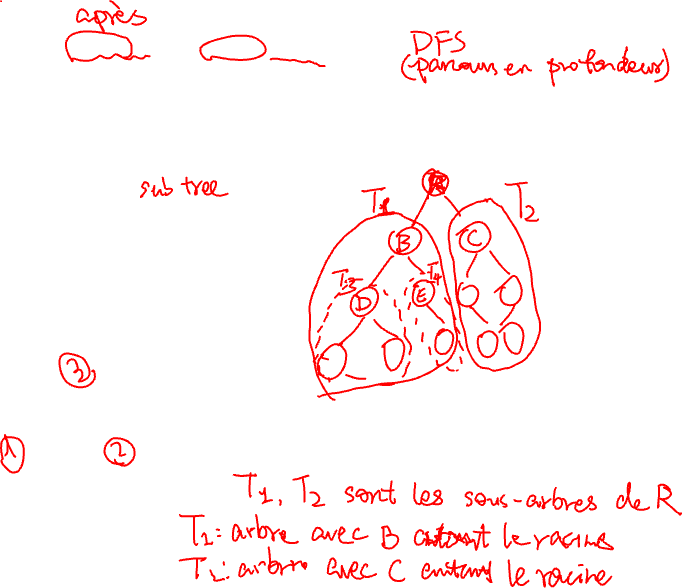 après
DFS
(parcours en profondeur)
sub tree
R
T1
T2
B
C
T3
T4
D
E
3
1
2
T1, T2 sont les sous-arbres de R
T1: arbre avec B le racine
T2: arbre avec C le racine